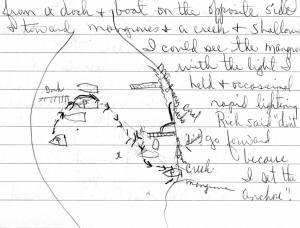 from a dock & boat on the opposite side
toward mangroves & a creek & shallow
I could see the mangrov
with the light I
held & occasional
rapid lightning
Rich said "
go forward
because
I let the
anchor".
Dock
creek
mangrove